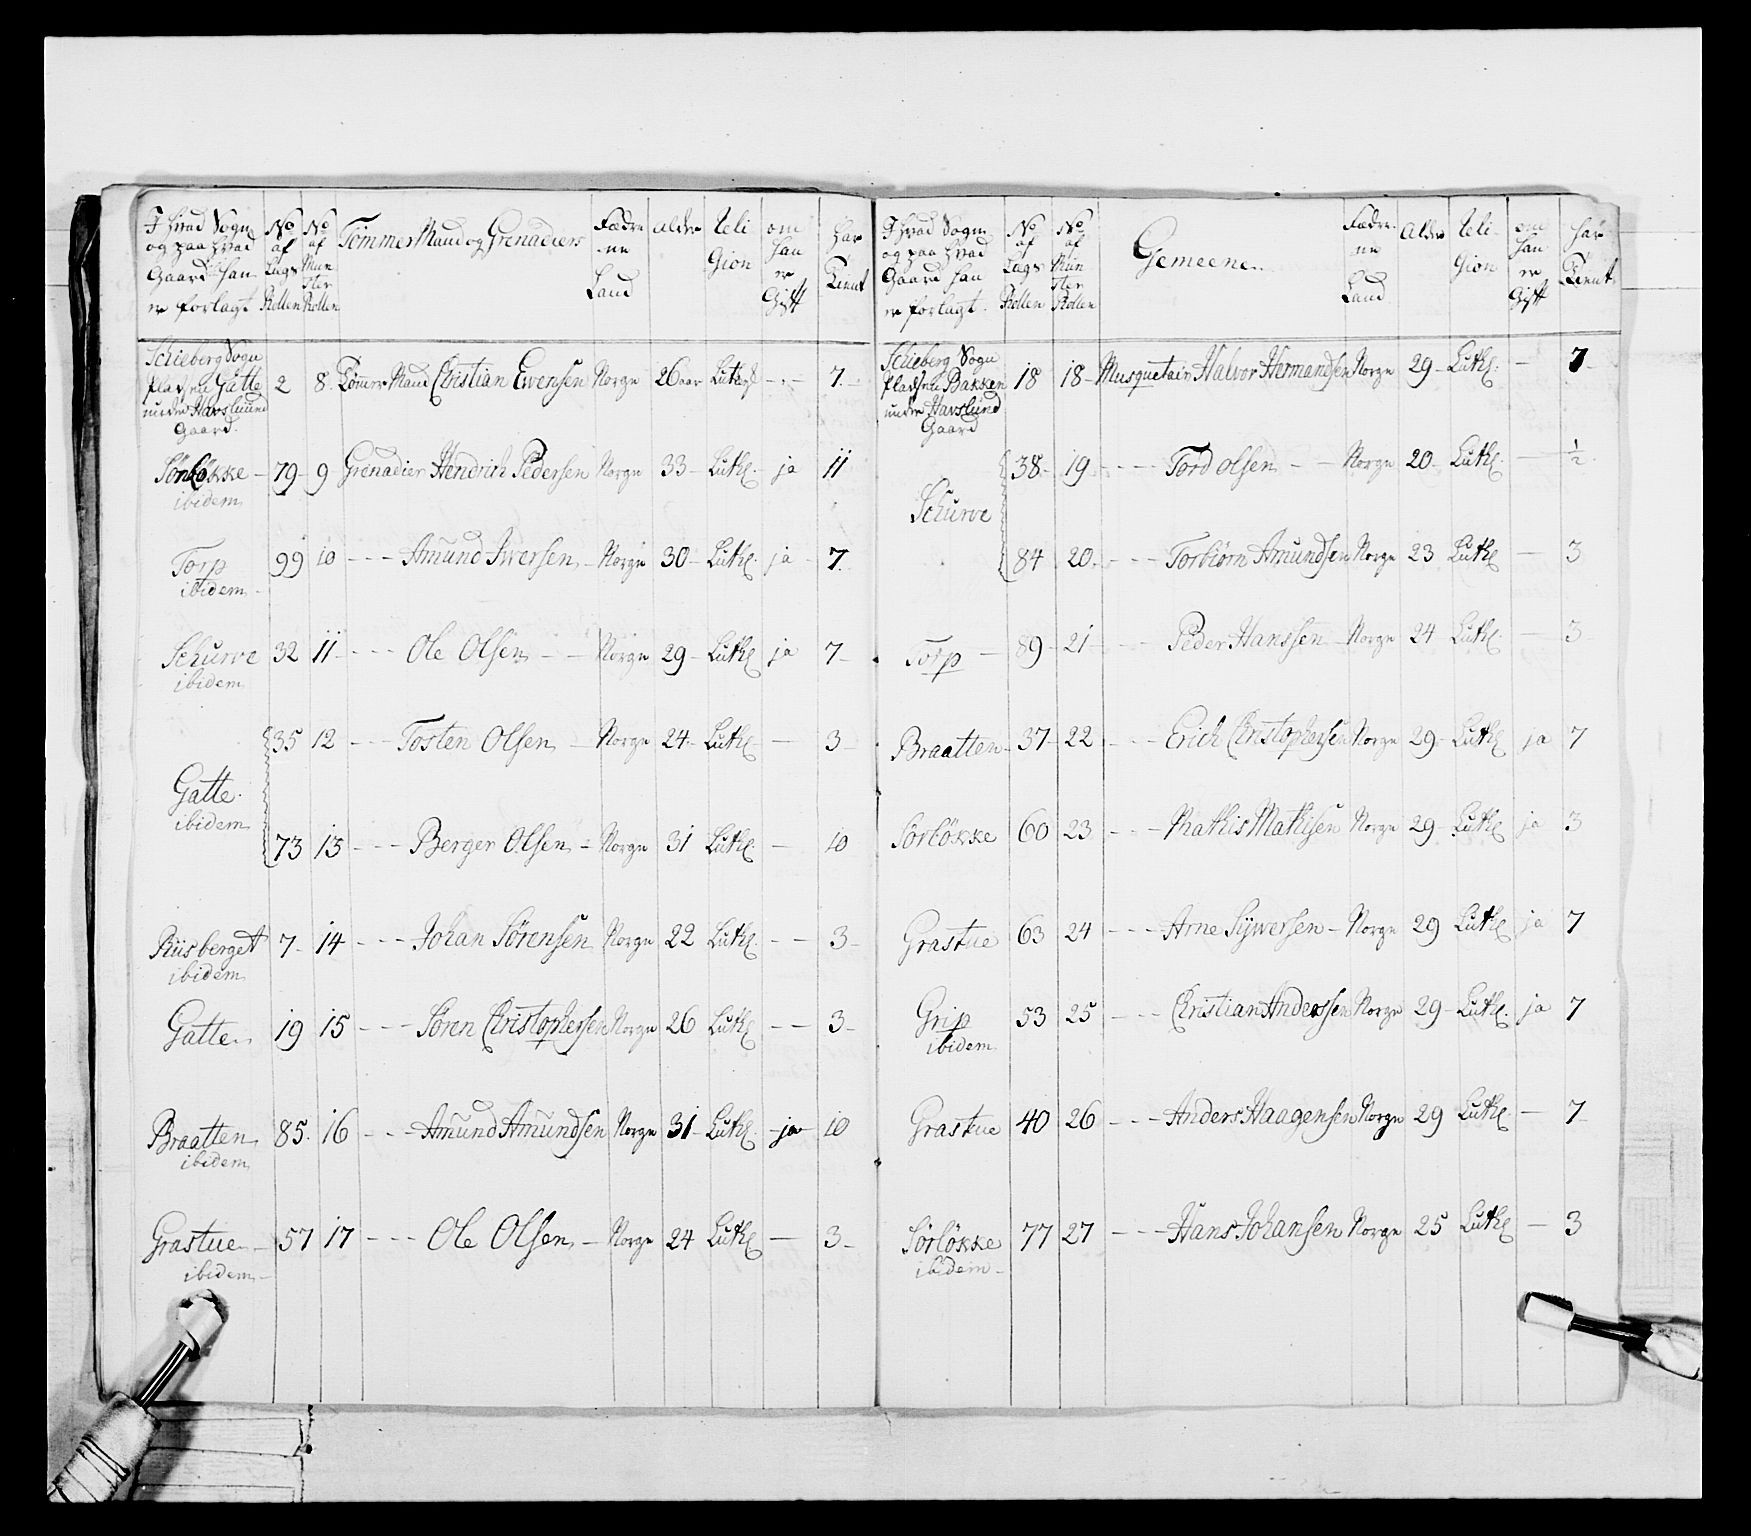 I hvad Sogn og paa hvad Gaard han er forlagt
No af Lags Rollen
No af Mun ster Rollen
Tømmer Mand og Grenadiers
Fædre ne Land
Alder
Reli Gion
om han er Gift
har tient
Schieberg Sogn
Pladsen Gatte
under Havslund
Gaard.
2 8. Tømmer Mand Christian Ewensen Norge 26 aar Luthers - . - 7. -
Sørløkke - 79 - 9 Grenadier Hendrich Pedersen Norge 33 - Luth. ja 11
ibidem
Torp 99 10 - - - Amund Iwersen - Norge 30 - Luth. ja - 7.
ibidem -
Schurve 32 11 - - - Ole Olsen - - Norge 29 - Luth ja 7 -
ibidem
Gatte.
ibidem
35 12 - - - Tosten Olsen - Norge 24 - Luth - 3 -
73 13 - - - Berger Olsen - Norge 31 Luth. - 10
Riisberget 7 - 14 - - - Johan Sørensen Norge 22 Luth. - - 3 -
ibidem
Gatte 19 15 - - - Søren Christophersen Norge 26 Luth - - 3 -
Braatten 85. 16 - - - Amund Amundsen Norge 31 - Luth. - ja - 10
ibidem
Grastue - 57 17 - - - Ole Olsen - Norge 24 Luth - 3 -
ibidem -
I hvad Sogn og paa hvad Gaard han er forlagt.
No af Lags Rollen
No af Mün ster Rollen
Gemeene
Fædre ne Land
Alder
Reli Gion
om han er Gift
har tient
Schieberg Sogn
Pladsen Bakken
under Havslund
Gaard
18 18 - Musquetair Halvor Hermandsen Norge 29 - Luth. - 7 -
Schurve
38 - 19 - - - Tord olsen - - Norge 20 - Luth. - ½.
84 20. - - - Torbiørn Amundsen Norge 23 Luth - 3
Torp - 89 - 21 - - - Peder Hanssen - Norge 24 Luth. - 3 -
Braatten - 37 - 22 - - - Erich Christophersen Norge 29 - Luth ja 7
Sørløkke 60 23 - - - Mathis Mathisen Norge 29 - Luth ja 3
Grastue 63 24 - - - Arne Sÿwersen - Norge 29 Luth ja 7
Grip 53 25 - - - Christian Anderssen Norge 29 - Luth. ja 7
ibidem
Grastue 40 26 - - - Anders Haagensen Norge 29 Luth - 7 -
Sørløkke 77 27 - - - Hans Johansen Norge 25 Luth - 3
ibidem -